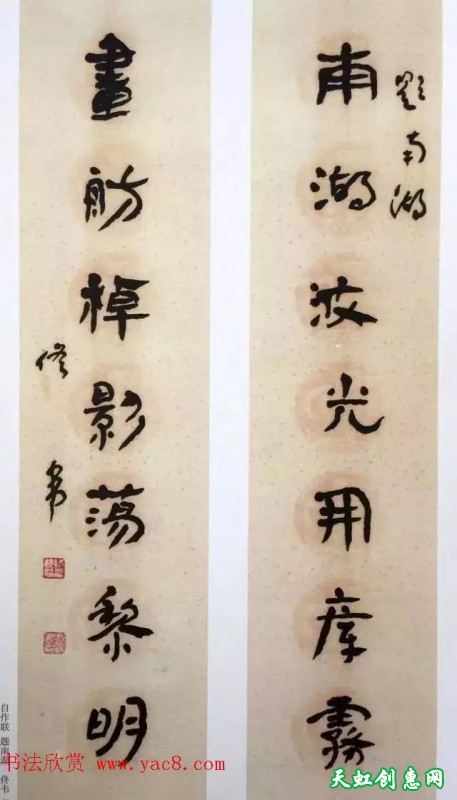 题南湖
南湖波光開瘴霧
畫舫棹影蕩黎明
佟韦
自作联 题南湖
书法欣赏 www.yac8.com
天虹创惠网